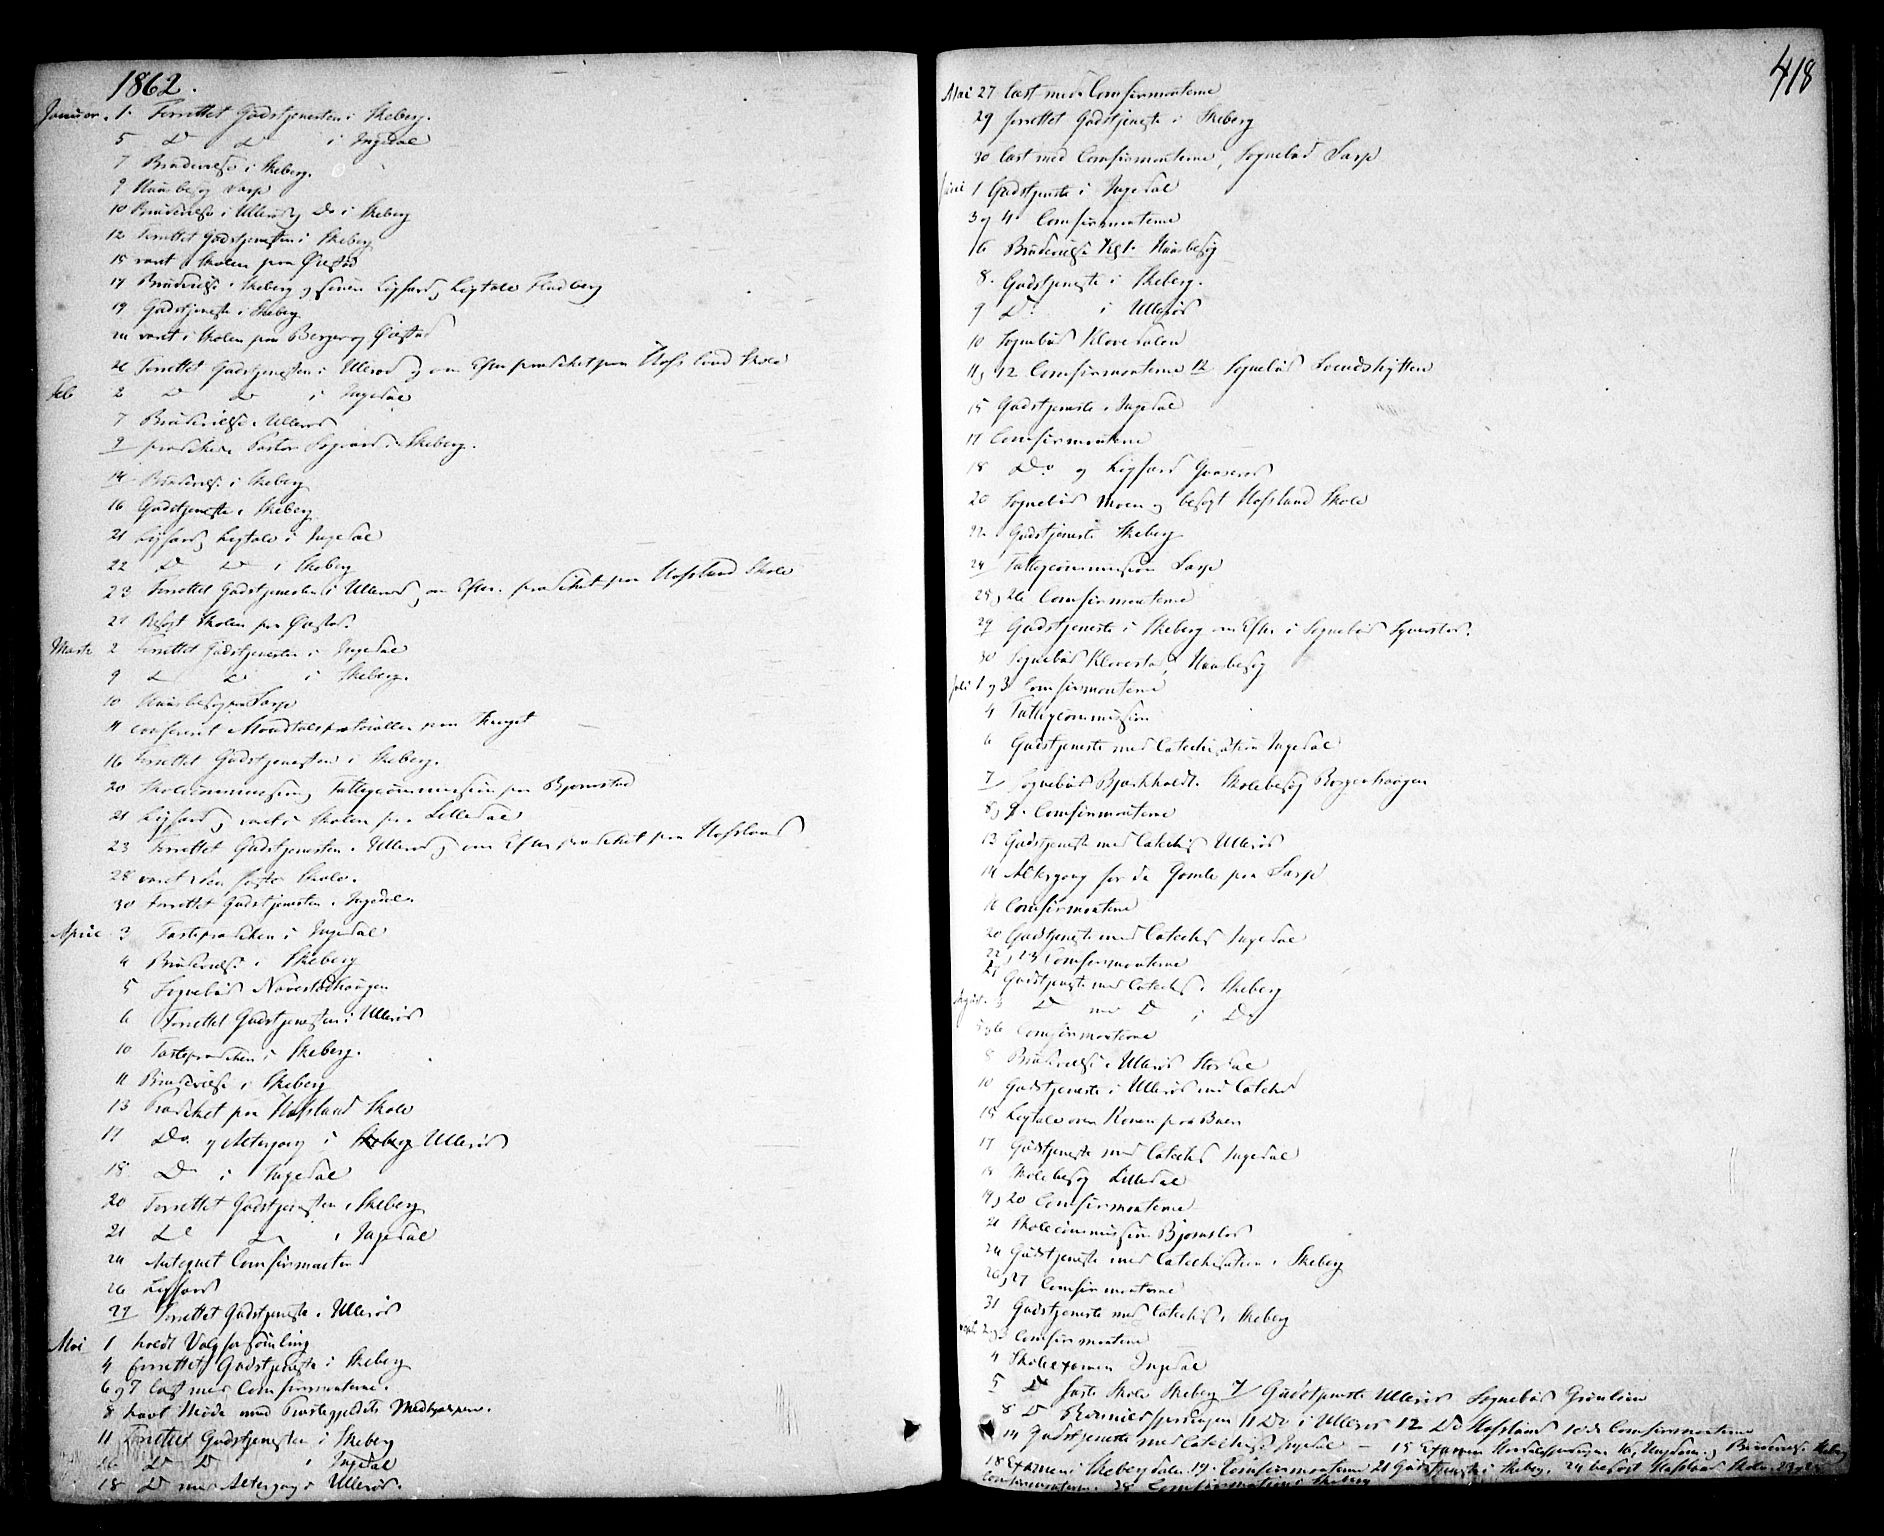 1862.
Januar. 1. Forrettet Gudstjenesten i Skeberg.
5 Do Do i Ingedal
7 Brudevielse i Skeberg.
9 Huusbesøg Sarp
10 Brudevielse i Ullerøe og Do i Skeberg
12 Forrettet Gudstjenesten i Skeberg
15 været i Skolen paa Ørestad
17 Brudevielse i Skeberg og siden Ligfærd og Ligtale
19 Gudstjeneste i Skeberg
været i Skolen paa Berger og
26 Forrettet Gudstjenesten i Ullerøe og om Efter prædiket paa Hafslund Skole
Feb 2 Do Do i Ingedal
7 Brudevielse i Ullerøe
9 prædikede Pastor i Skeberg.
14 Brudevielse i Skeberg
16 Gudstjeneste i Skeberg
21 Ligfærd og Ligtale i Ingedal
22 Do Do i Skeberg
23 Forrettet Gudstjenesten i Ullerøe og om Efter. prædiket paa Hafslund Skole
27 Besøgt Skolen paa
Marts 2 Forrettet Gudstjenesten i Ingedal
9 Do Do i Skeberg.
10 Huusbesøg paa Sarp
11 confereret Mandtalsprotocollen paa Thinget
16 Forrettet Gudstjenesten i Skeberg.
20 Skolecommission og Fattigcommission paa Bjørnstad
21 Ligfærd og været i Skolen paa Lilledal
23 Forrettet Gudstjenesten i Ullerøe og om Efter prædiket paa Hafslund
28 været i den faste Skole.
30 Forrettet Gudstjenesten i Ingedal.
April 3 Fasteprædiken i Ingedal
4 Brudevielse i Skeberg
5 Sognebud Navestadhaugen
6 Forrettet Gudstjenesten i Ullerøe
10 Fasteprædiken i Skeberg.
11 Brudevielse i Skeberg
13 Prædiket paa Hafslund Skole
17 Do og Altergang i Skeberg Ullerøe
18 Do i Ingedal
20 Forrettet Gudstjenesten i Skeberg
21 Do Do i Ingedal
24 Antegnet Comfirmanter
26 Ligfærd
27 Forrettet Gudstjeneste i Ullerøe
Mai 1 holdt Valgforsamling
4 forrettet Gudstjeneste i Skeberg
6 og 7 læst med Comfirmanterne.
8 havt Møde med Præstegjeldets Medhjelpere.
11 Forrettet Gudstjenesten i Skeberg
16 Do Do i Ingedal
18 Do med Altergang i Ullerøe.
418
Mai 27 læst med Comfirmanterne
29 forrettet Gudstjeneste i Skeberg
30 læst med Comfirmanterne, Sognebud Sarp
Juni 1 Gudstjeneste i Ingedal
3 og 4 Comfirmanterne
6 Brudevielse Huusbesøg
8. Gudstjeneste i Skeberg.
9 Do i Ullerøe
10 Sognebud Kløvedalen
11 og 12 Comfirmanterne 12 Sognebud Svendshytten
15 Gudstjeneste i Ingedal
17 Comfirmanterne
18 Do og Ligfærd
20 Sognebud Moen og besøgt Hafslund Skole
22. Gudstjeneste Skeberg
24 Fattigcommission Sarp
25 og 26 Comfirmanterne
29 Gudstjeneste i Skeberg om Efter i Sognebud
30 Sognebud Huusbesøg
Juli 1 og 3 Comfirmanterne
4 Fattigcommission
6 Gudstjeneste med Catechisation Ingedal
7 Sognebud Bjørkholdt. Skolebesøg Borgenhaugen
8 og 9. Comfirmanterne
13 Gudstjeneste med Catechis Ullerøe
14 Altergang for de Gamle paa Sarp
16 Comfirmanterne
20 Gudstjeneste med Catechis Ingedal
22, 23 Comfirmanterne
Gudstjeneste med Catechis i Skeberg
August. 3 Do med Do i Do
5 og 6 Comfirmanterne
8 Brudevielse i Ullerøe Stordal
10 Gudstjeneste i Ullerøe med Catechis
15 Ligtale over Konen paa
17 Gudstjeneste med Catechis Ingedal
18 Skolebesøg Lilledal
19 og 20 Comfirmanterne
21 Skolecommission Bjørnstad
24 Gudstjeneste med Catechisation i Skeberg
26 og 27 Comfirmanterne
31 Gudstjeneste med Catechis i Skeberg
Septb 2 og 3 Comfirmanterne
4 Skoleexamen Ingedal
5 Do faste Skole Skeberg 7 Gudstjeneste Ullerøe Sognebud Grønlien
8 Do 11 Do i Ullerøe 12 Do Hafslund Comfirmanterne
14 Gudstjeneste med Catechis Ingedal — 15 Examen Brudevielse Skeberg
18 Examen i Skebergdalen 19. Comfirmanterne 21 Gudstjeneste i Skeberg. 24 besøgt Hafslund Skole.
Comfirmanterne. 28 Comfirmation i Skeberg